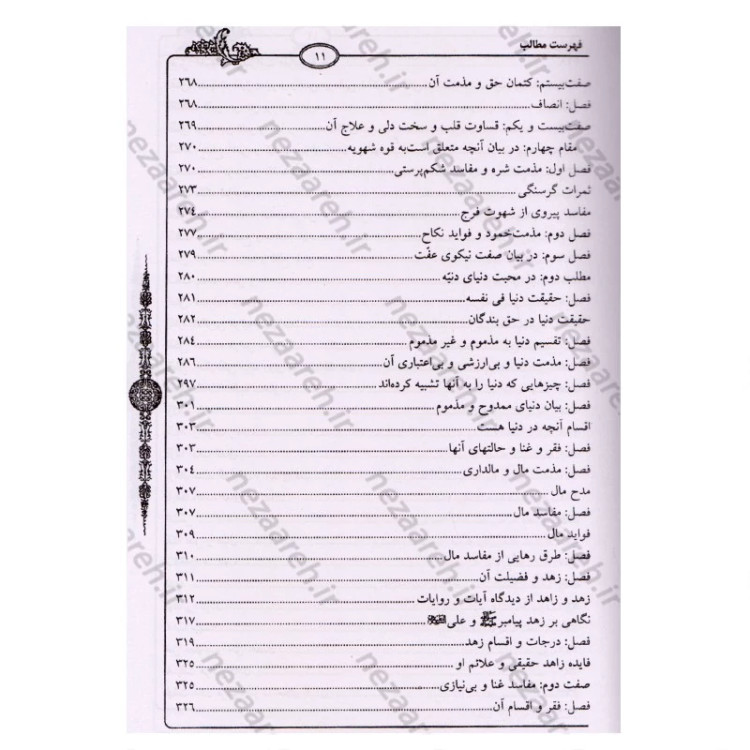 فهرست مطالب
۱۱
صفت‌بیستم: کتمان حق و مذمت آن..........۲۶۸
فصل: انصاف..........۲۶۸
صفت‌بیست و یکم: قساوت قلب و سخت دلی و علاج آن..........۲۶۹
مقام چهارم: در بیان آنچه متعلق است‌به قوه شهویه..........۲۷۰
فصل اول: مذمت شره و مفاسد شکم‌پرستی..........۲۷۰
ثمرات گرسنگی..........۲۷۳
مفاسد پیروی از شهوت فرج..........۲۷۴
فصل دوم: مذمت‌خمود و فواید نکاح..........۲۷۷
فصل سوم: در بیان صفت نیکوی عفّت..........۲۷۹
مطلب دوم: در محبت دنیای دنیّه..........۲۸۰
فصل: حقیقت دنیا فی نفسه..........۲۸۱
حقیقت دنیا در حق بندگان..........۲۸۲
فصل: تقسیم دنیا به مذموم و غیر مذموم..........۲۸۴
فصل: مذمت دنیا و بی‌ارزشی و بی‌اعتباری آن..........۲۸۶
فصل: چیزهایی که دنیا را به آنها تشبیه کرده‌اند..........۲۹۷
فصل: بیان دنیای ممدوح و مذموم..........۳۰۱
اقسام آنچه در دنیا هست..........۳۰۳
فصل: فقر و غنا و حالتهای آنها..........۳۰۳
فصل: مذمت مال و مالداری..........۳۰۴
مدح مال..........۳۰۷
فصل: مفاسد مال..........۳۰۷
فواید مال..........۳۰۹
فصل: طرق رهایی از مفاسد مال..........۳۱۰
فصل: زهد و فضیلت آن..........۳۱۱
زهد و زاهد از دیدگاه آیات و روایات..........۳۱۲
نگاهی بر زهد پیامبرﷺ و علی..........۳۱۷
فصل: درجات و اقسام زهد..........۳۱۹
فایده زاهد حقیقی و علائم او..........۳۲۵
صفت دوم: مفاسد غنا و بی‌نیازی..........۳۲۵
فصل: فقر و اقسام آن..........۳۲۶
nezaareh.ir